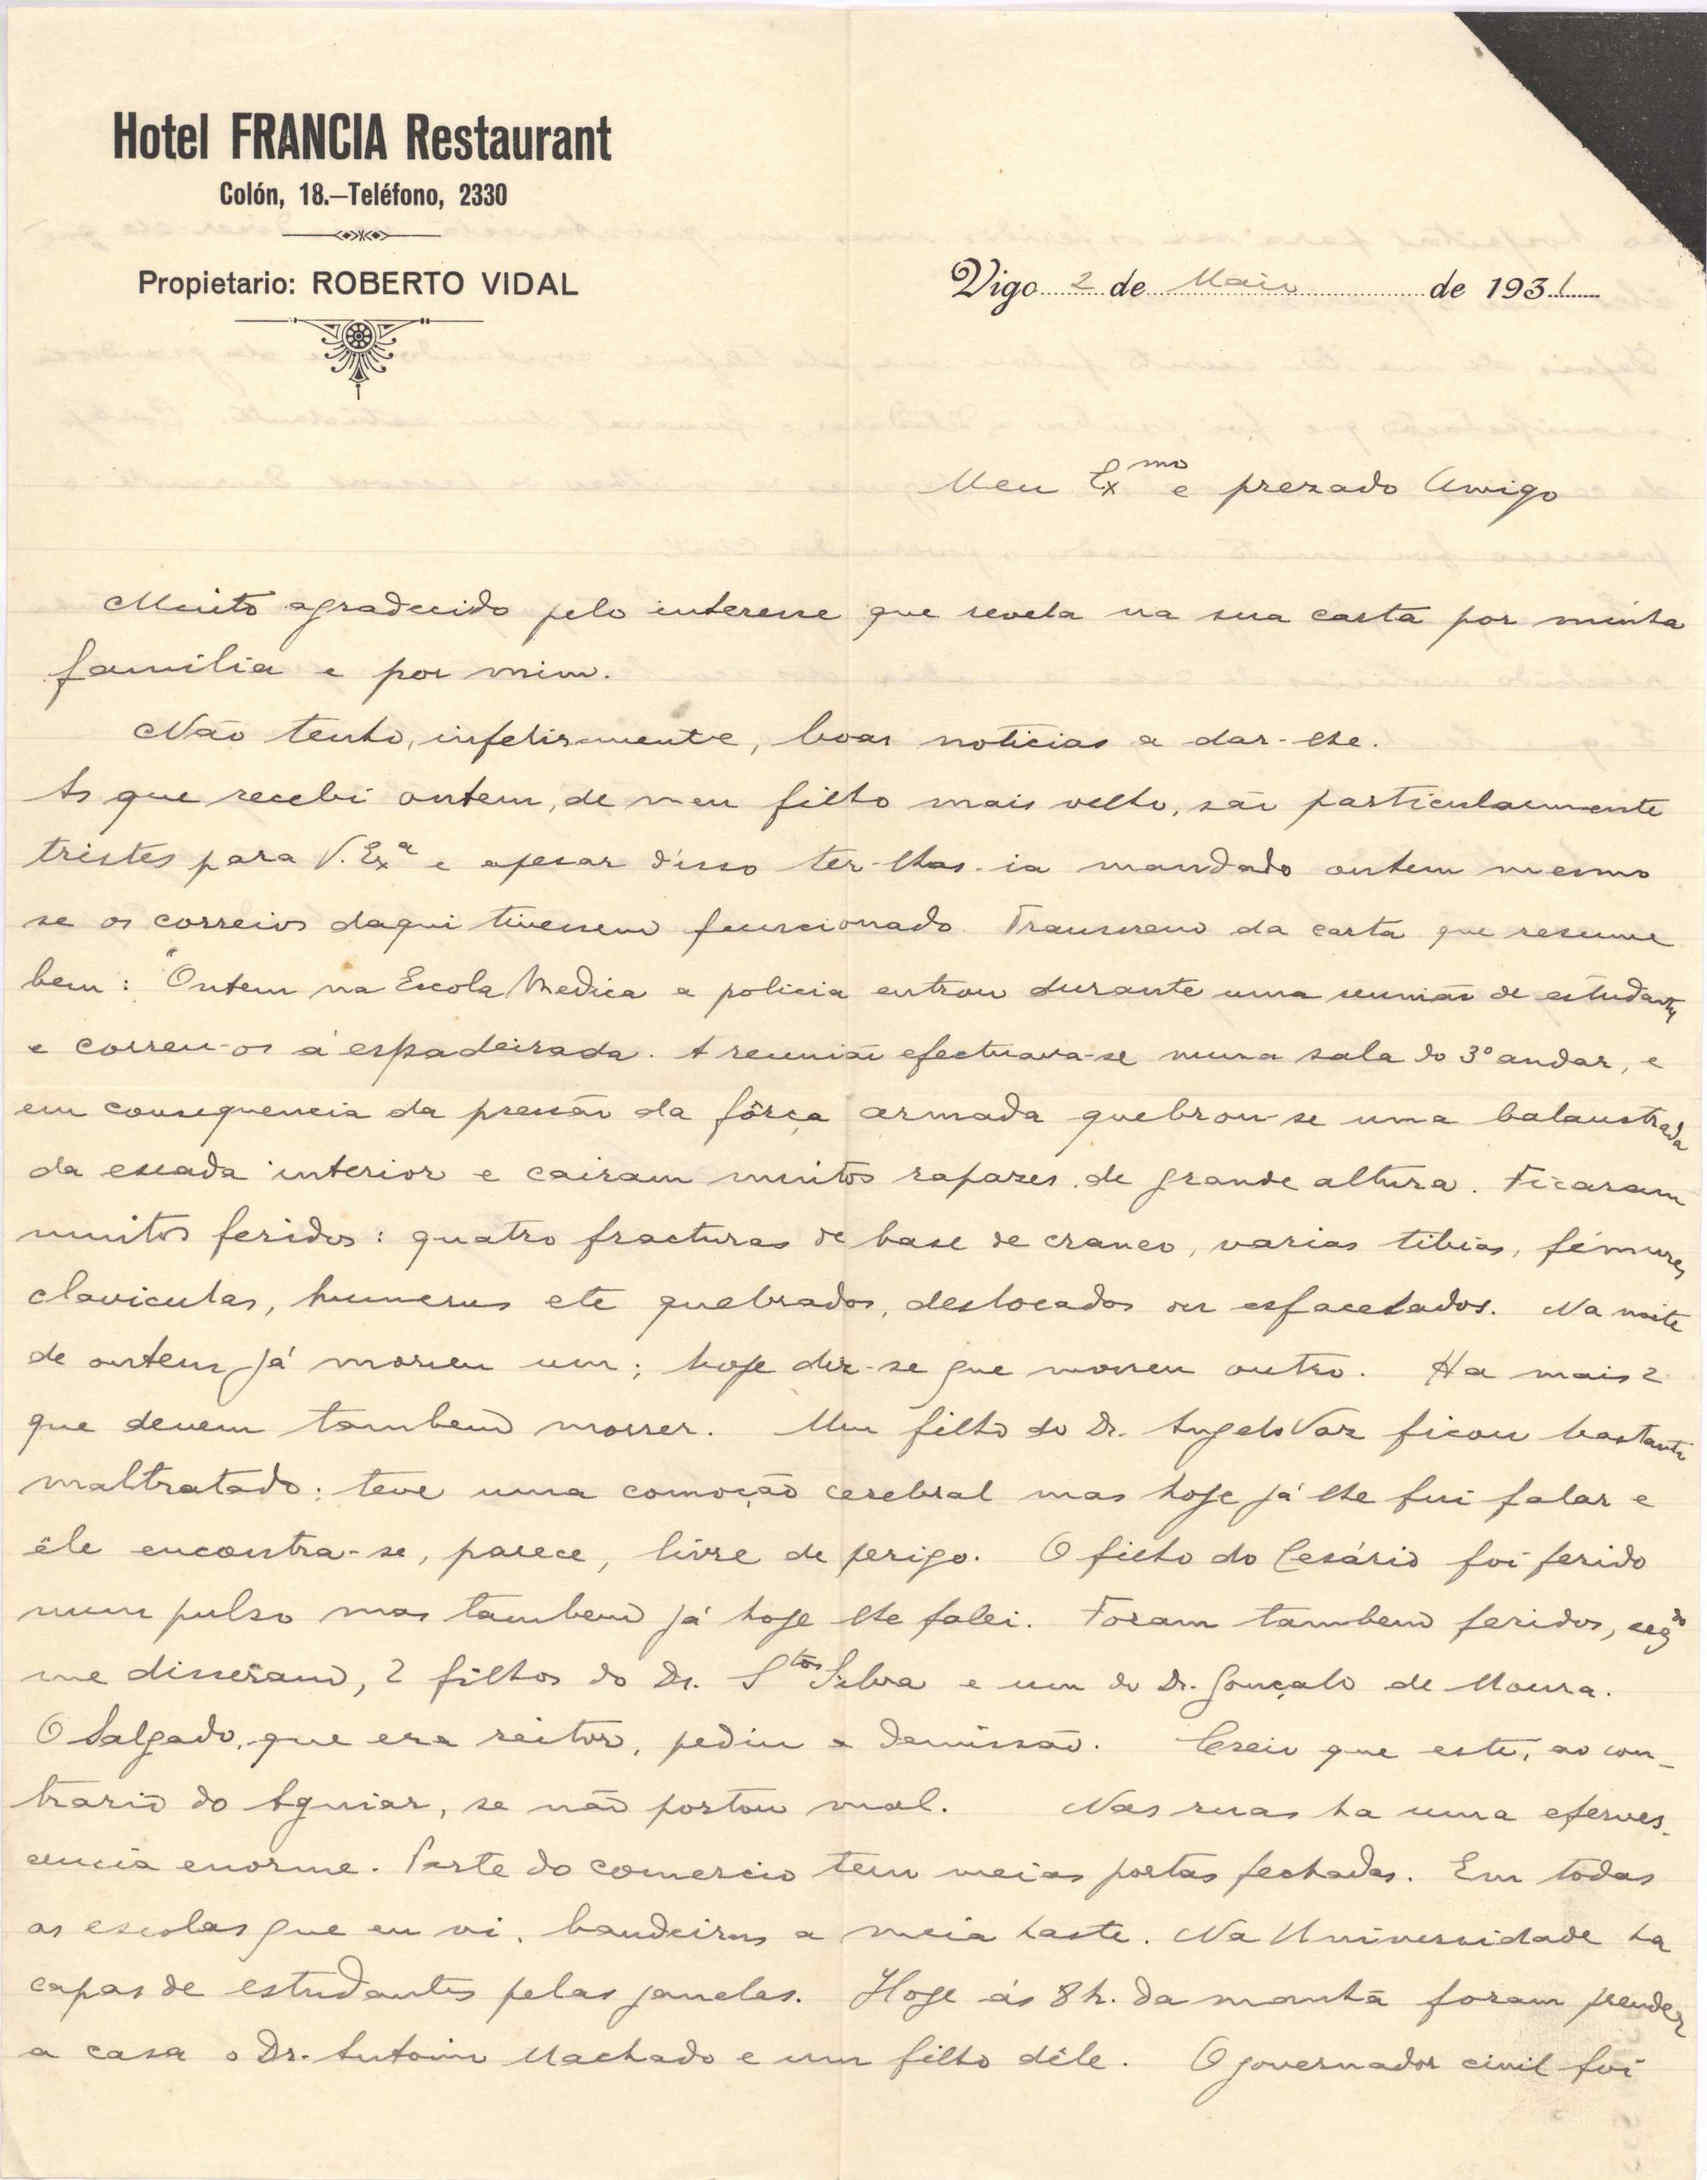 Hotel FRANCIA Restaurant
Colón, 18.—Teléfono, 2330
Propietario: ROBERTO VIDAL
Vigo 2 de Maio de 1931
Meu Exmo e prezado Amigo
Muito agradecido pelo interesse que revela na sua carta por minha
familia e por mim.
Não tenho, infelismente, boas noticias a dar-lhe.
As que recebi ontem, de meu filho mais velho, são particularmente
tristes para V. Exa e apesar disso ter-lhas-ia mandado ontem mesmo
se os correios daqui tivessem funcionado. Transcrevo da carta que resume
bem: "Ontem na Escola Medica a policia entrou durante uma reunião de estudantes
e correu-os á espadeirada. A reunião efectuava-se numa sala do 3º andar, e
em consequencia da pressão da fôrça armada quebrou-se uma balaustrada
da escada interior e cairam muitos rapazes de grande altura. Ficaram
muitos feridos: quatro fracturas de base de craneo, varias tibias, fémures
claviculas, humerus etc quebrados, deslocados ou esfacelados. Na noite
de ontem já morreu um; hoje diz-se que morreu outro. Ha mais 2
que devem tambem morrer. Um filho do Dr. Angelo Vaz ficou bastante
maltratado: teve uma comoção cerebral mas hoje já lhe fui falar e
êle encontra-se, parece, livre de perigo. O filho do Cesário foi ferido
num pulso mas tambem já hoje lhe falei. Foram tambem feridos, segdo
me disseram, 2 filhos do Dr. Stos Silva e um do Dr. Gonçalo de Moura.
O Salgado, que era reitor, pediu a demissão. Creio que este, ao con-
trario do Aguiar, se não portou mal. Nas ruas ha uma eferves-
cencia enorme. Parte do comercio tem meias portas fechadas. Em todas
as escolas que eu vi, bandeiras a meia haste. Na Universidade ha
capas de estudantes pelas janelas. Hoje ás 8h. da manhã foram prender
a casa o Dr. Antonio Machado e um filho dêle. O governador civil foi